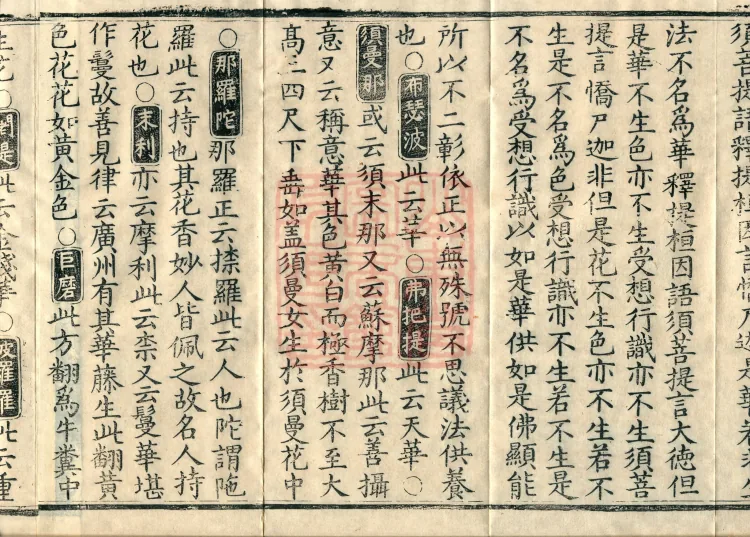 須菩提語釋提桓因言憍尸迦是華若不生
法不名為華釋提桓因語須菩提言大德但
是華不生色亦不生受想行識亦不生須菩
提言憍尸迦非但是花不生色亦不生若不
生是不名為色受想行識亦不生若不生是
不名為受想行識以如是華供如是佛顯能
所以不二彰依正以無殊號不思議法供養
也○布瑟波此云華○弗把提此云天華○
須曼那或云須末那又云蘇摩那此云善攝
意又云稱意華其色黃白而極香樹不至大
髙三四尺下垂如盖須曼女生於須曼花中
○那羅陀那羅正云捺羅此云人也陀謂陁
羅此云持也其花香妙人皆佩之故名人持
花也○末利亦云摩利此云柰又云鬘華堪
作鬘故善見律云廣州有其華藤生此翻黃
色花花如黃金色○巨磨此方翻為牛糞中
生花○闍提此云金錢華○波羅羅此云重